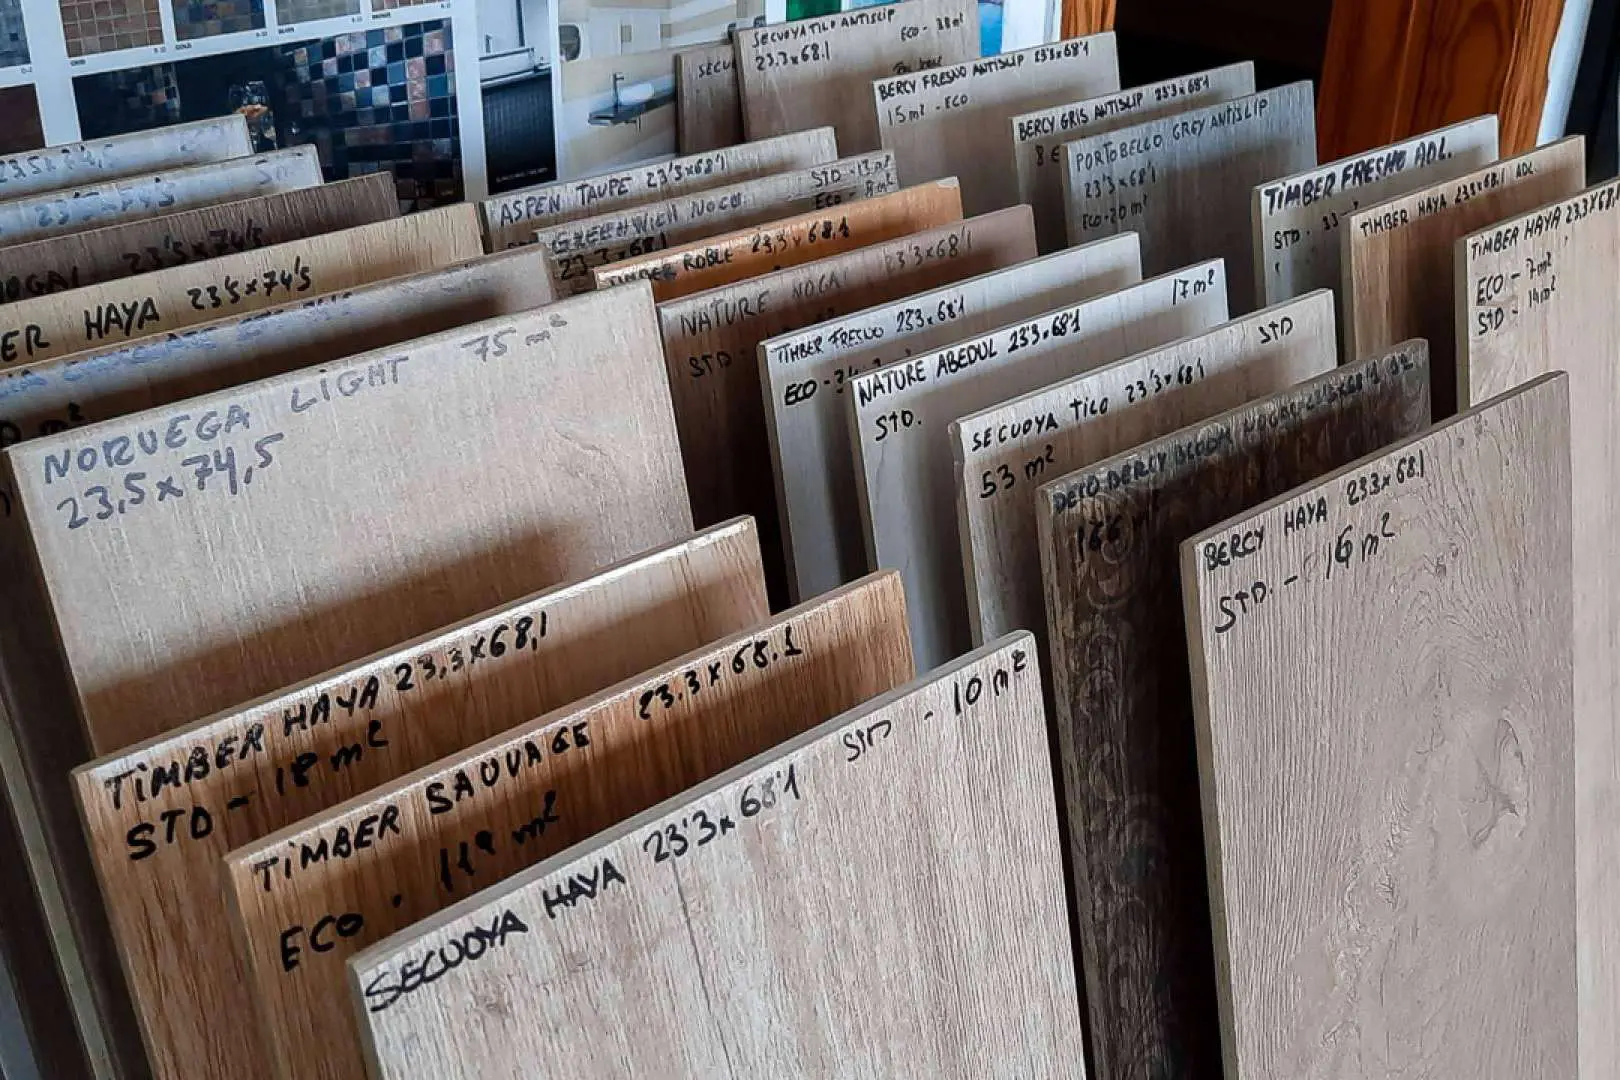 SECUOYA TILO ANTISLIP ECO - 38 m²
23.3x68.1
SECU
BERCY FRESNO ANTISLIP 23'3x68'1
15 m² - ECO
BERCY GRIS ANTISLIP 23'3x68'1
8
PORTOBELLO GREY ANTISLIP
23'3x68'1
ECO-20 m²
TIMBER FRESNO ADL.
STD - 33
TIMBER HAYA 23'3x68.1 ADL
TIMBER HAYA 23.3x68,1
ECO - 7m²
STD - 14m²
ASPEN TAUPE 23'3x68'1
GREENWICH NOCE STD - 13 m²
ECO - 8 m²
23.3x68.1
TIMBER ROBLE 23,3x68.1
NATURE NOGAL 23'3x68'1
STD -
TIMBER FRESNO 233x68'1
ECO -
NATURE ABEDUL 23'3x68'1 17 m²
STD.
SECUOYA TILO 23'3x68'1 STD
53 m²
DECO BERCY
BERCY HAYA 233x68.1
STD. - 16 m²
23.5x74,5
23'5x74'5 5 m²
NOGAL 23'5x74'5
ER HAYA 23'5x74'5
NORUEGA LIGHT 75 m²
23,5x74,5
TIMBER HAYA 23,3x68,1
STD - 18 m²
TIMBER SAUVAGE 23.3x68.1
ECO · 119 m²
SECUOYA HAYA 23'3x68'1 STD - 10 m²